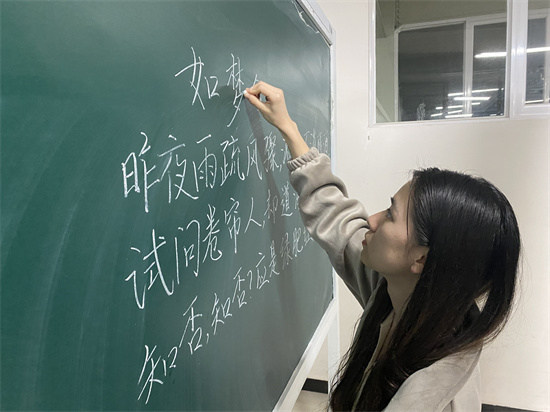 如梦
昨夜雨疏风骤
试问卷帘人,却道
知否,知否?应是绿肥